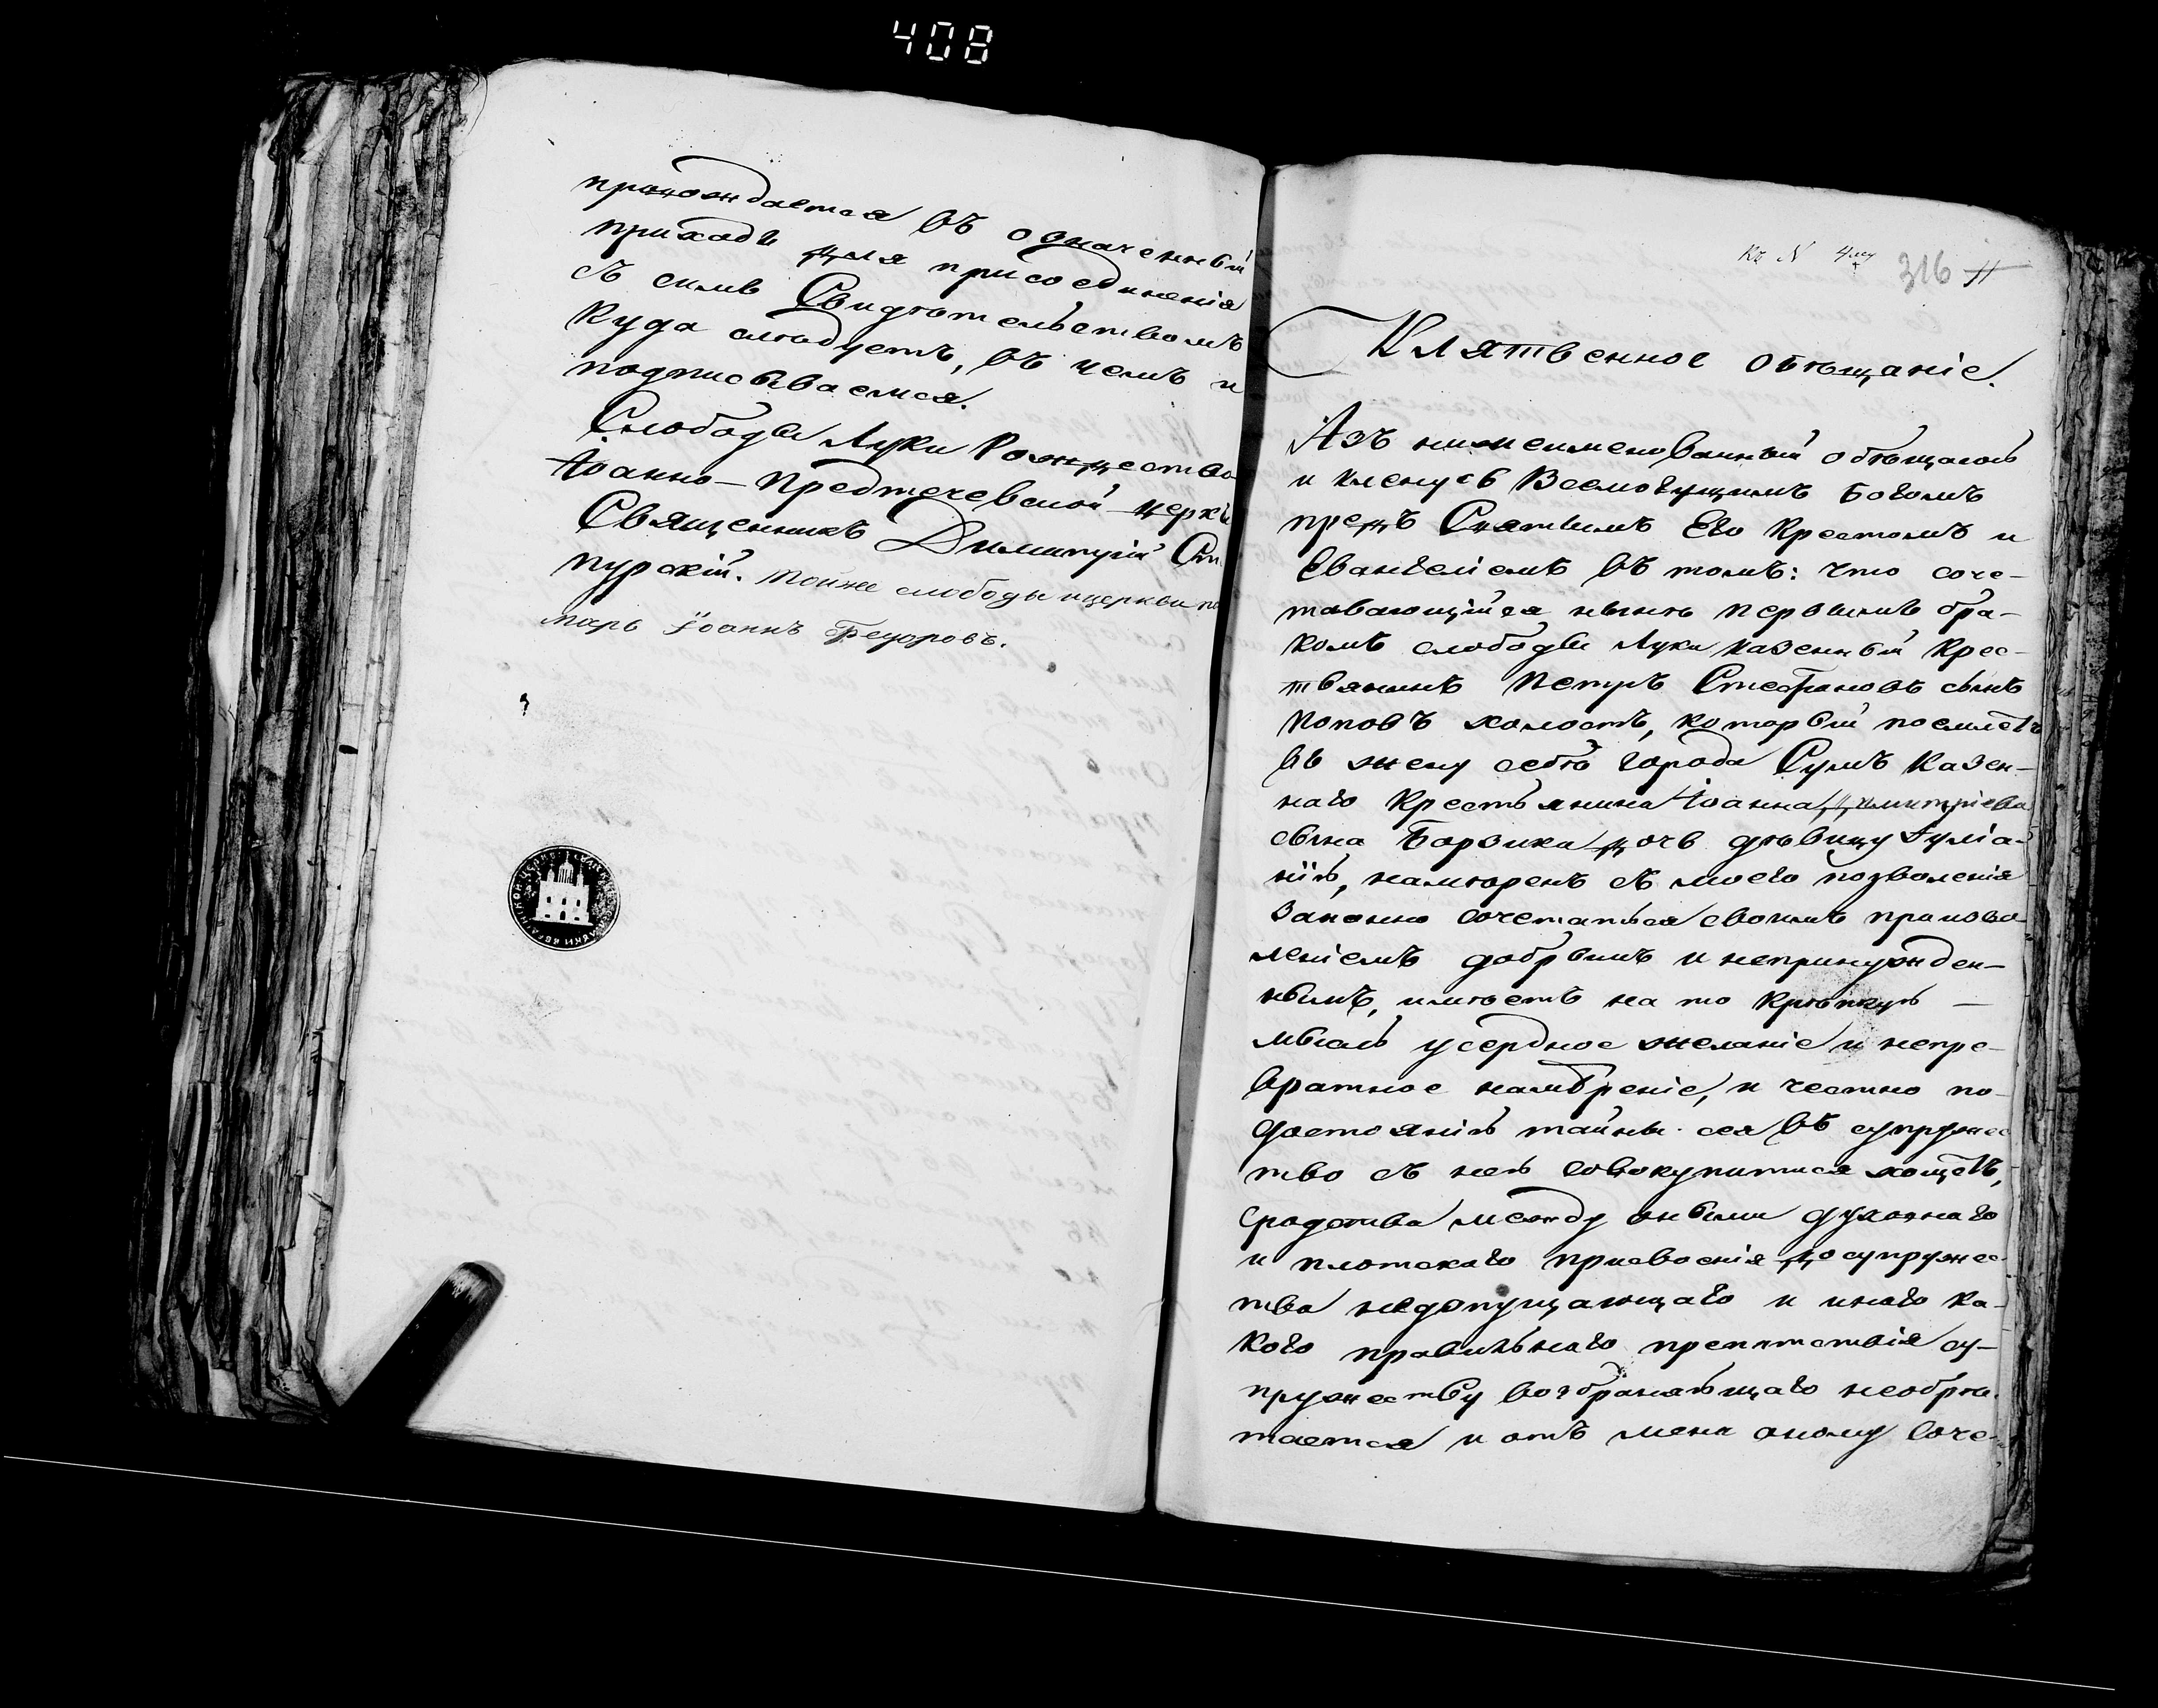 408
препровождается въ означенный
приходъ для присоединенія
съ симъ Свидѣтельствомъ
куда слѣдуетъ, въ чемъ и
подписываемся.
Слободы Луки Рождество
Іоанно-Предтечевской церкви
Священникъ Димитрій Ст
пурскій. Тойже слободы и церкви по
марь Іоаннъ Федоровъ.
Къ N 4му 316
Клятвенное обѣщаніе.
Азъ нижеименованный обѣщаюсь
и кленусь Всемогущимъ Богомъ
предъ Святымъ Его Крестомъ и
Евангеліемъ въ томъ: что соче-
тавающійся нынѣ первымъ бра-
комъ слободы Луки казенный крес-
тьянинъ Петръ Стефановъ сынъ
Поповъ холостъ, который поемлетъ
въ жену себѣ города Сумъ казен-
наго крестьянина Іоанна Димитріева
сына Борзика дочь дѣвицу Іуліа-
нію, намѣренъ съ моего позволенія
законно сочетаться своимъ произво-
леніемъ добрымъ и непринужден-
нымъ, имѣетъ на то крѣпкую —
мысль усердное желаніе и непре-
вратное намѣреніе, и честно по-
достоянію тайны сея въ супружес
тво съ нею совокупитися хощетъ,
сродства между оными духовнаго
и плотскаго присвоенія до супружес
тва недопущающаго и инаго ка-
кого правильнаго препятствія су-
пружеству возбраняющаго необрѣ-
тается и отъ мене оному соче-